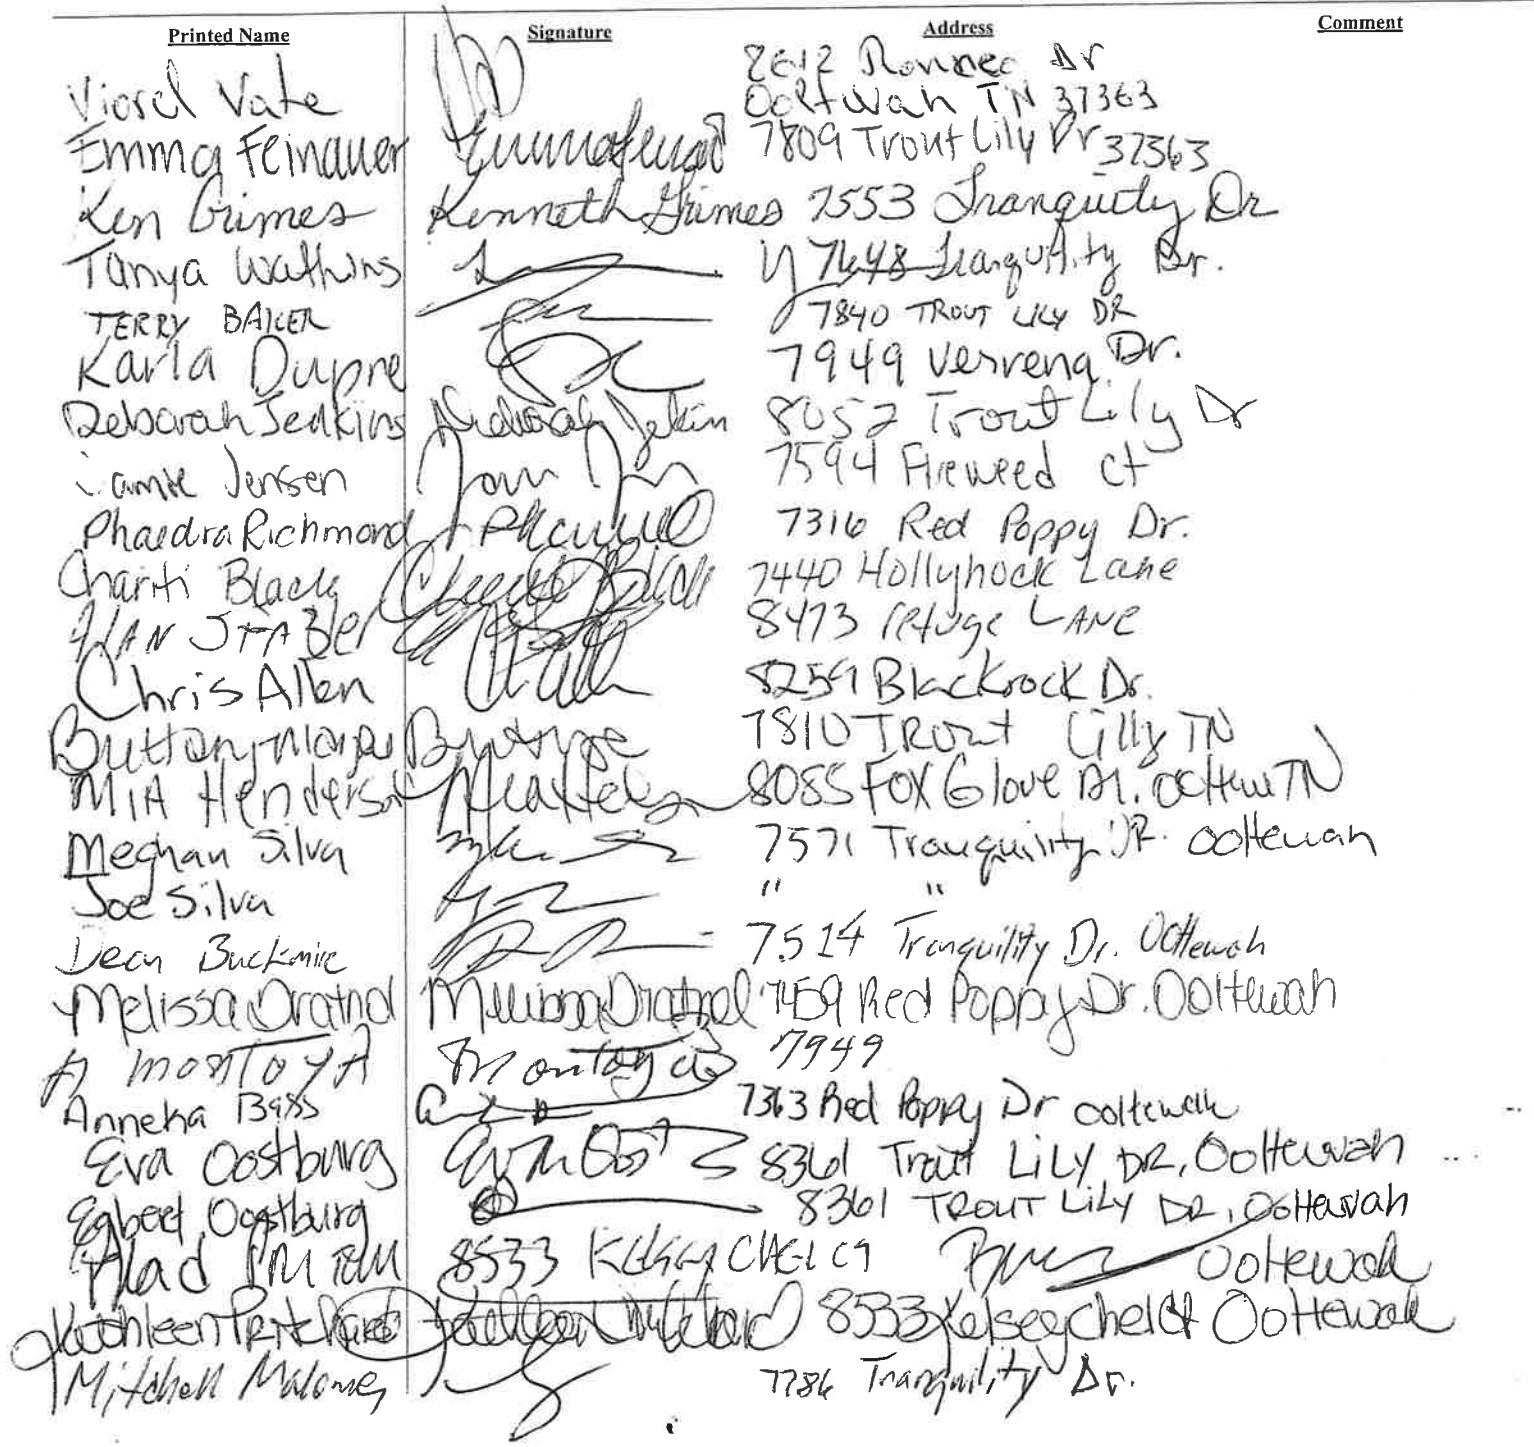 Printed Name Signature Address Comment
Viorel Vate 8612 Dr
Ooltewah TN 37363
Emma Feinauer 7809 Trout Lily Dr 37363
Ken Grimes Kenneth Grimes 7553 Tranquility Dr
Tanya Watkins 7648 Tranquility Dr.
TERRY BAKER 7840 TROUT LILY DR
Karla Dupre 7949 Dr.
Deborah Jenkins 8052 Trout Lily Dr
Jamie Jensen 7594 Fireweed Ct
Phaedra Richmond 7316 Red Poppy Dr.
Chariti Black 7440 Hollyhock Lane
STABler 8473 refuge LANE
Chris Allen 8259 Blackrock Dr.
7810 TROUT Lilly TN
MIA Henderson 8085 FOX Glove TN
Meghan Silva 7571 Tranquility DR. Ooltewah
Joe Silva " "
Dean Buckmire 7514 Tranquility Dr. Ooltewah
Melissa 7459 Red Poppy Dr. Ooltewah
A MONTOYA Montoya 7949
Anneka Bass 7363 Red Poppy Dr Ooltewah
Eva Oostburg 8361 Trout LiLY DR, Ooltewah
Egbert Oostburg 8361 TROUT LiLY DR, Ooltewah
8533 Ooltewah
Kathleen Pritchard Kathleen Pritchard 8533 Kelsey Chel Ct Ooltewah
Mitchell Maloney 7786 Tranquility Dr.